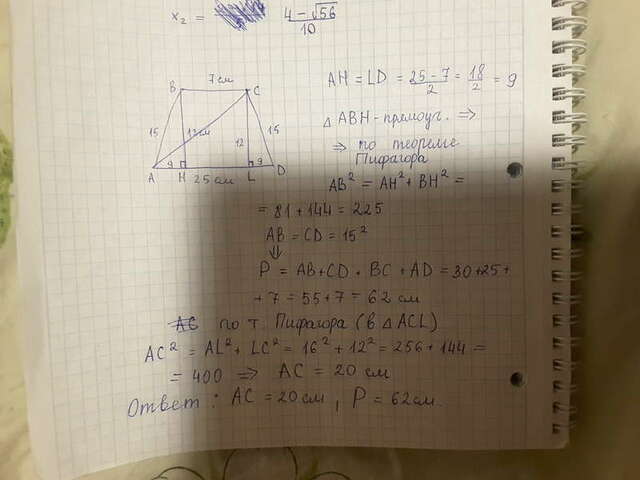 x₂ = (4 − √56)/10
7 см
B C
15 12 см 12 15
9 9
A H L D
25 см
AH = LD = (25 − 7)/2 = 18/2 = 9
△ ABH - прямоуг. ⇒
⇒ по теореме
Пифагора
AB² = AH² + BH² =
= 81 + 144 = 225
AB = CD = 15²
⇓
P = AB + CD + BC + AD = 30 + 25 +
+ 7 = 55 + 7 = 62 см
AC по т. Пифагора (в △ ACL)
AC² = AL² + LC² = 16² + 12² = 256 + 144 =
= 400 ⇒ AC = 20 см
Ответ: AC = 20 см, P = 62 см.